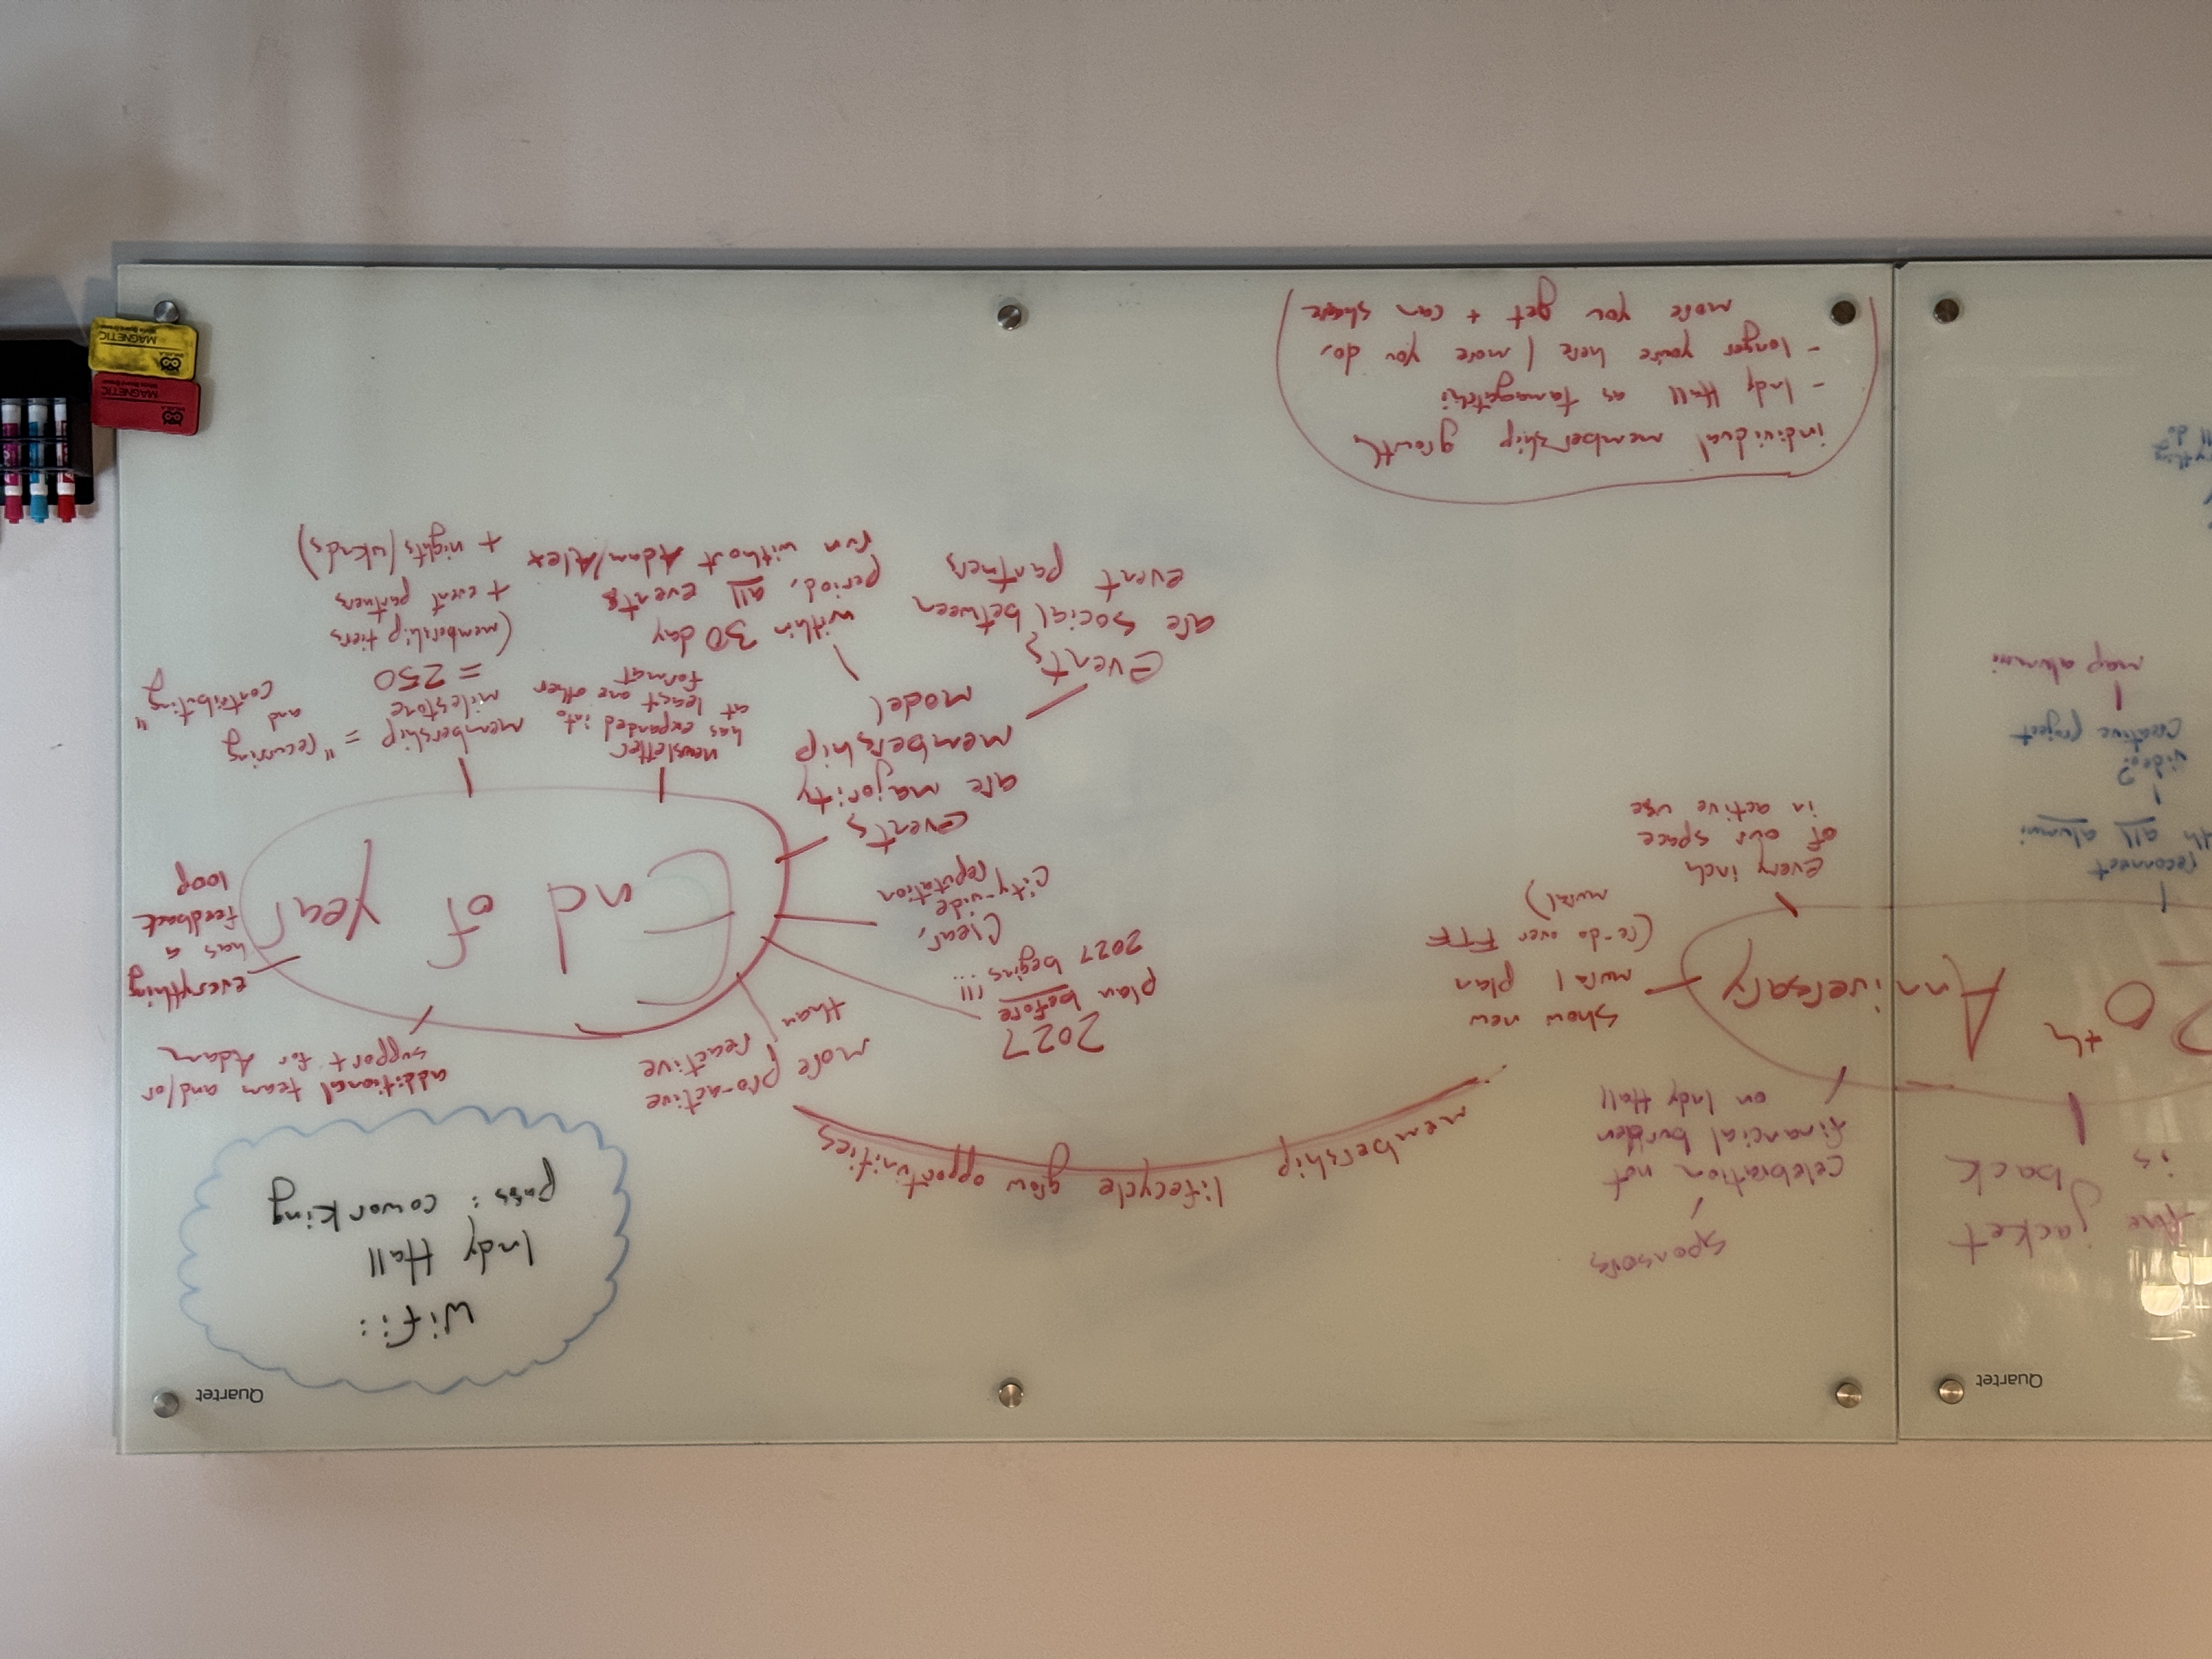 Quartet
Quartet
the jacket
is back
20th Anniversary
reconnect
all alumni
video?
creative project
map alumni
sponsors
celebration not
financial burden
on Indy Hall
show new
mural plan
(re-do over FTF
mural)
every inch
of our space
in active use
membership lifecycle grow opportunities
Wifi:
Indy Hall
pass: coworking
End of Year
additional team and/or
support for Adam
everything
has a
feedback
loop
more pro-active
than reactive
2027
plan before
2027 begins!!!
Clear,
city-wide
reputation
events
are majority
membership
model
events
are social between
event partners
within 30 day
period, all events
run without Adam/Alex
newsletter
has expanded into
at least one other
format
membership = "recurring
milestone and
contributing"
= 250
(membership tiers
+ event partners
+ nights/wknds)
individual membership growth
- Indy Hall as tamagotchi
- longer you're here / more you do,
more you get + can share
MAGNETIC
MAGNETIC